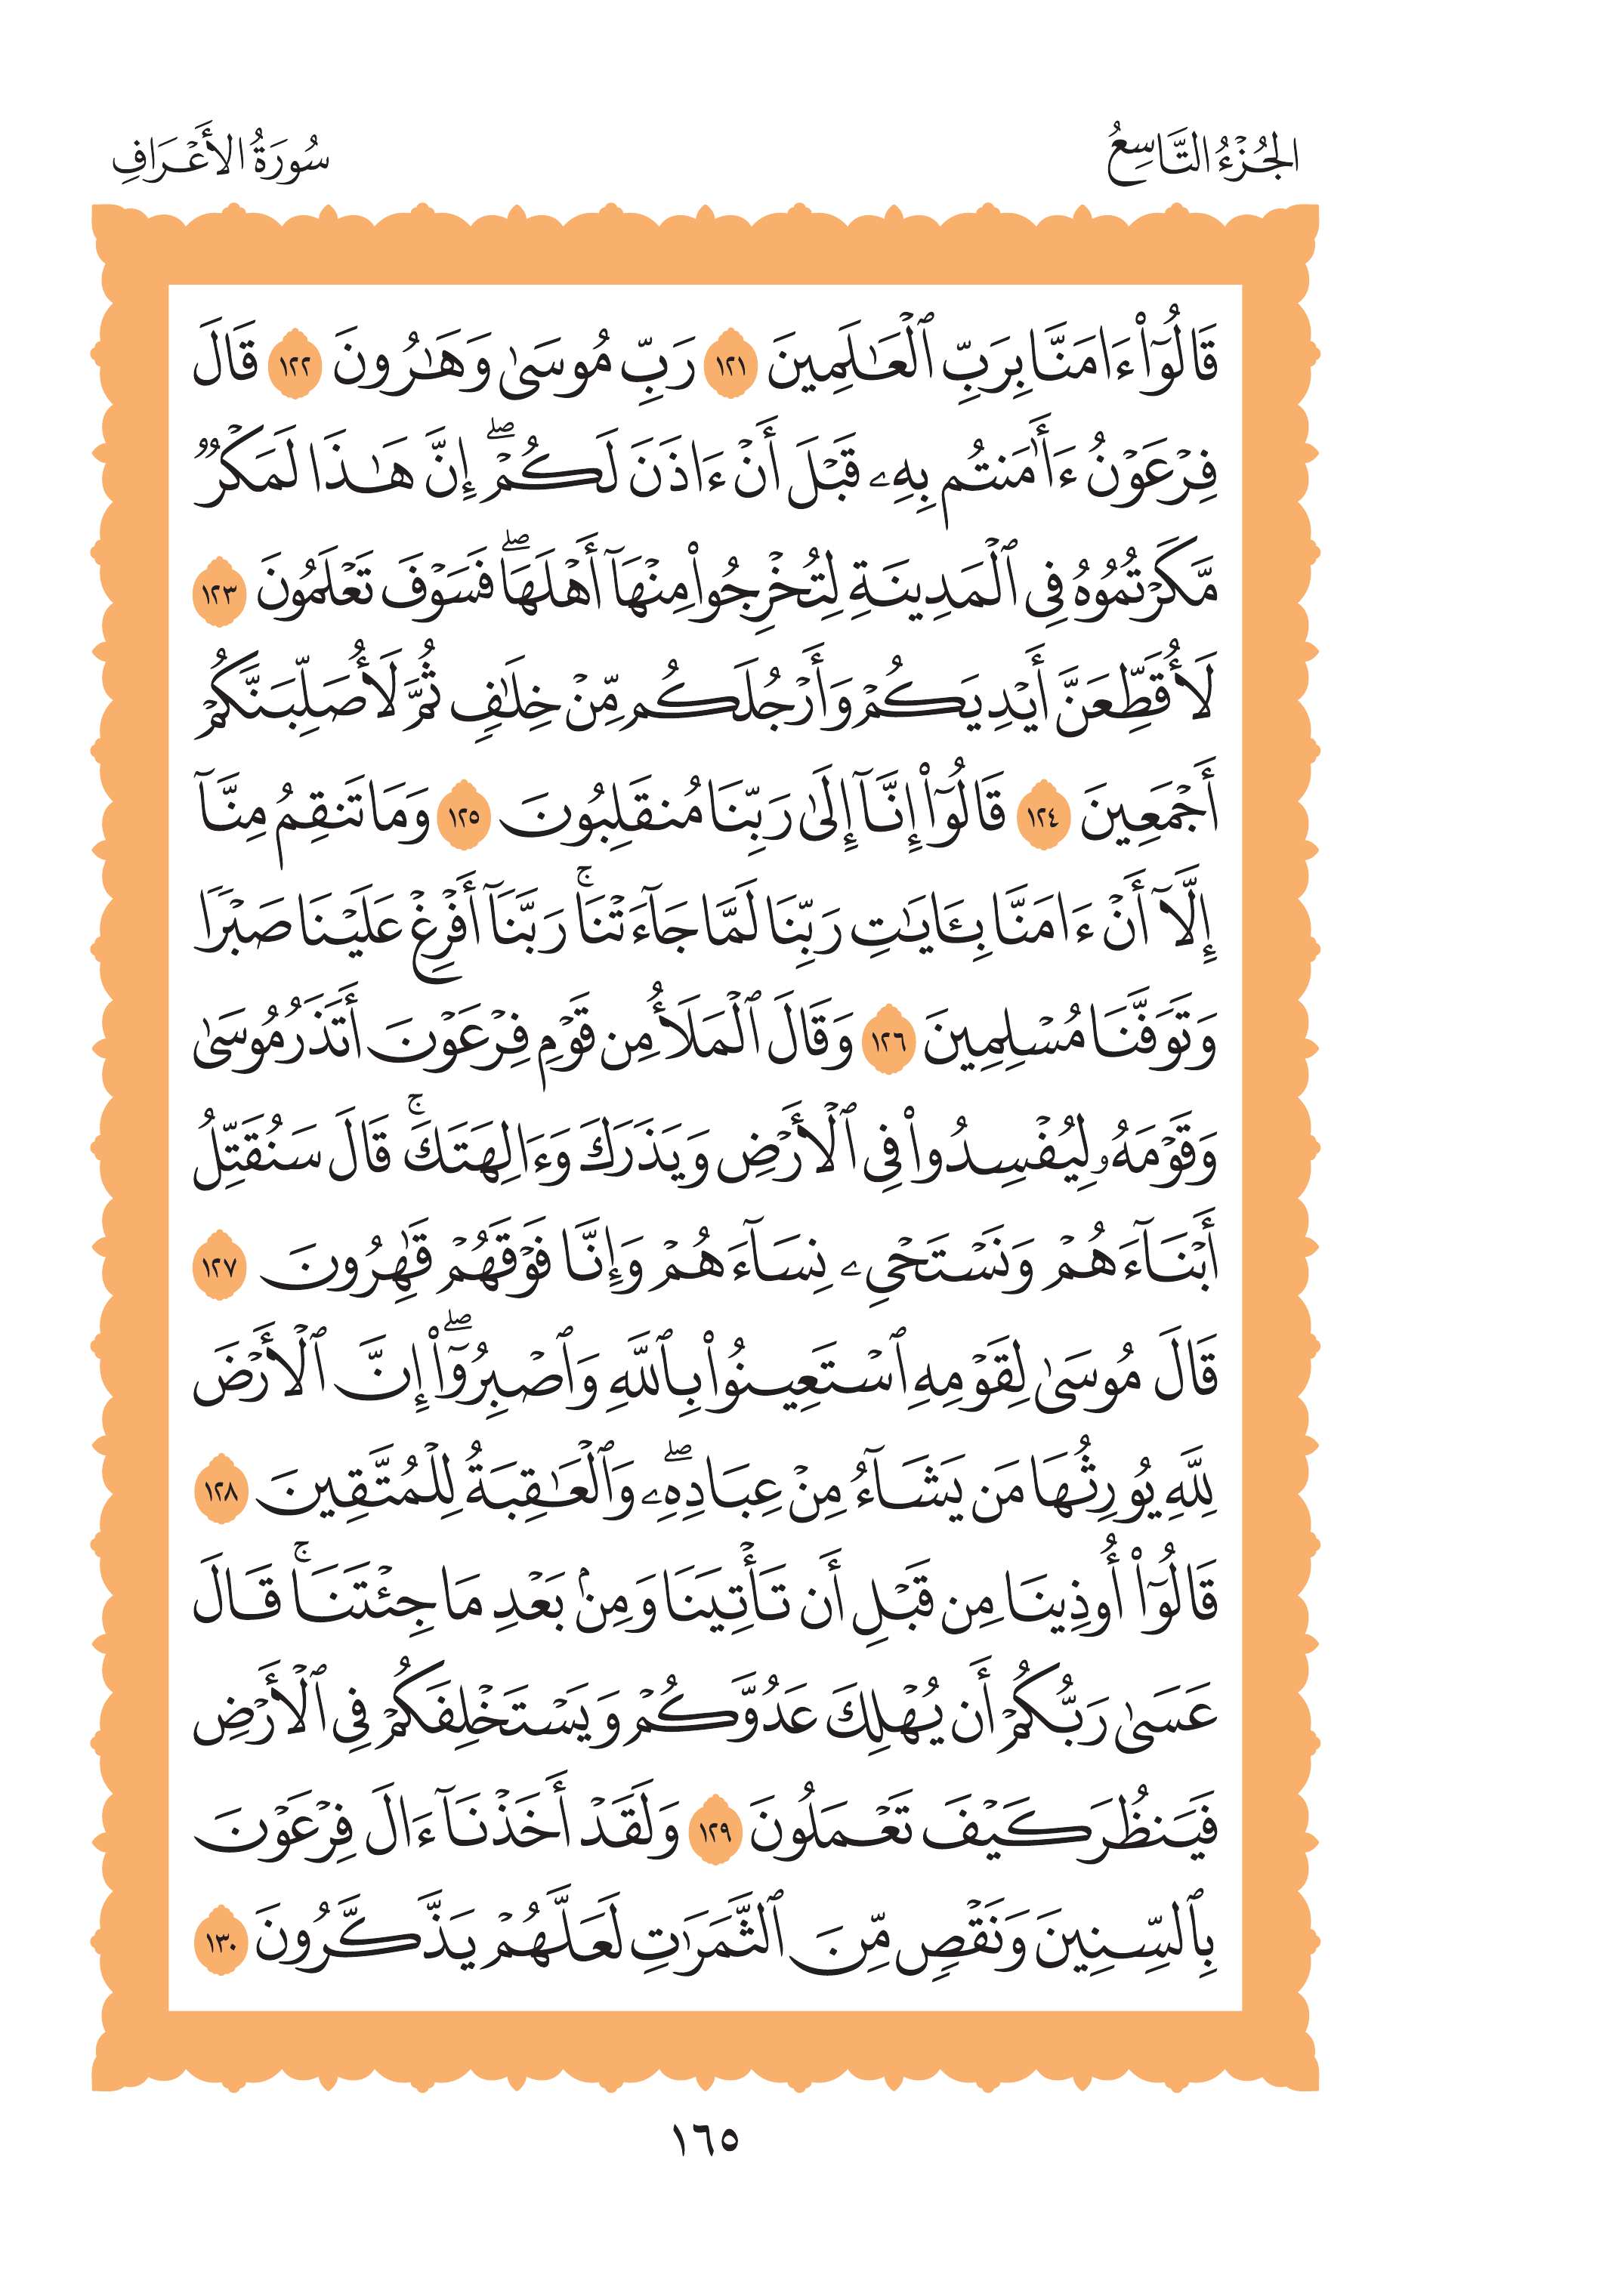 الجُزْءُ التَّاسِعُ
سُورَةُ الأَعْرَافِ
قَالُوٓا۟ ءَامَنَّا بِرَبِّ ٱلْعَـٰلَمِينَ ١٢١ رَبِّ مُوسَىٰ وَهَـٰرُونَ ١٢٢ قَالَ
فِرْعَوْنُ ءَأَٰمَنتُم بِهِۦ قَبْلَ أَنْ ءَاذَنَ لَكُمْ ۖ إِنَّ هَـٰذَا لَمَكْرٌ
مَّكَرْتُمُوهُ فِى ٱلْمَدِينَةِ لِتُخْرِجُوا۟ مِنْهَآ أَهْلَهَا ۖ فَسَوْفَ تَعْلَمُونَ ١٢٣
لَأُقَطِّعَنَّ أَيْدِيَكُمْ وَأَرْجُلَكُم مِّنْ خِلَـٰفٍ ثُمَّ لَأُصَلِّبَنَّكُمْ
أَجْمَعِينَ ١٢٤ قَالُوٓا۟ إِنَّآ إِلَىٰ رَبِّنَا مُنقَلِبُونَ ١٢٥ وَمَا تَنقِمُ مِنَّآ
إِلَّآ أَنْ ءَامَنَّا بِـَٔايَـٰتِ رَبِّنَا لَمَّا جَآءَتْنَا ۚ رَبَّنَآ أَفْرِغْ عَلَيْنَا صَبْرًا
وَتَوَفَّنَا مُسْلِمِينَ ١٢٦ وَقَالَ ٱلْمَلَأُ مِن قَوْمِ فِرْعَوْنَ أَتَذَرُ مُوسَىٰ
وَقَوْمَهُۥ لِيُفْسِدُوا۟ فِى ٱلْأَرْضِ وَيَذَرَكَ وَءَالِهَتَكَ ۚ قَالَ سَنُقَتِّلُ
أَبْنَآءَهُمْ وَنَسْتَحْىِۦ نِسَآءَهُمْ وَإِنَّا فَوْقَهُمْ قَـٰهِرُونَ ١٢٧
قَالَ مُوسَىٰ لِقَوْمِهِ ٱسْتَعِينُوا۟ بِٱللَّهِ وَٱصْبِرُوٓا۟ ۖ إِنَّ ٱلْأَرْضَ
لِلَّهِ يُورِثُهَا مَن يَشَآءُ مِنْ عِبَادِهِۦ ۖ وَٱلْعَـٰقِبَةُ لِلْمُتَّقِينَ ١٢٨
قَالُوٓا۟ أُوذِينَا مِن قَبْلِ أَن تَأْتِيَنَا وَمِنۢ بَعْدِ مَا جِئْتَنَا ۚ قَالَ
عَسَىٰ رَبُّكُمْ أَن يُهْلِكَ عَدُوَّكُمْ وَيَسْتَخْلِفَكُمْ فِى ٱلْأَرْضِ
فَيَنظُرَ كَيْفَ تَعْمَلُونَ ١٢٩ وَلَقَدْ أَخَذْنَآ ءَالَ فِرْعَوْنَ
بِٱلسِّنِينَ وَنَقْصٍ مِّنَ ٱلثَّمَرَٰتِ لَعَلَّهُمْ يَذَّكَّرُونَ ١٣٠
١٦٥